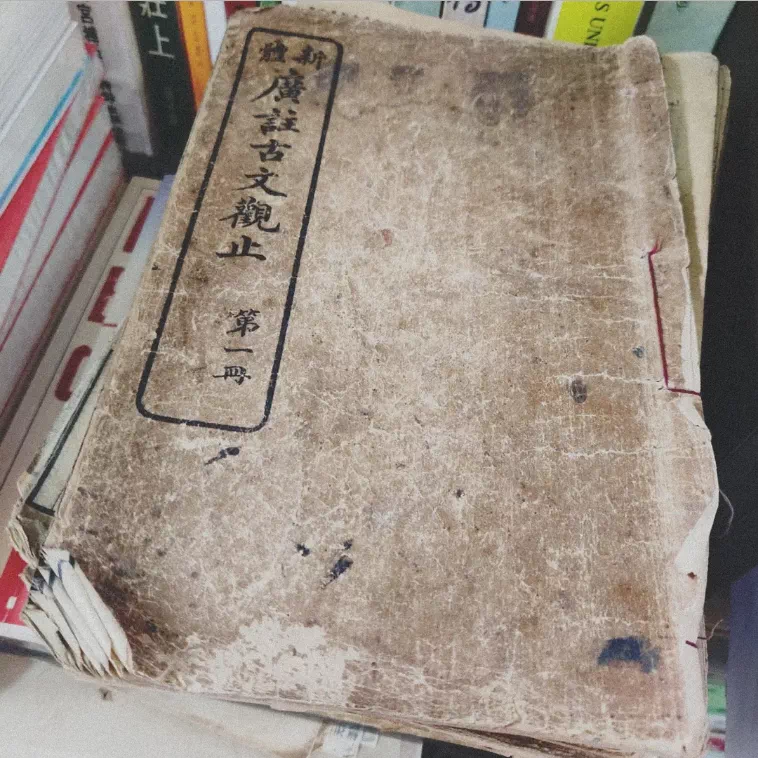 新體
廣註古文觀止
第一冊
莊上
S UNI